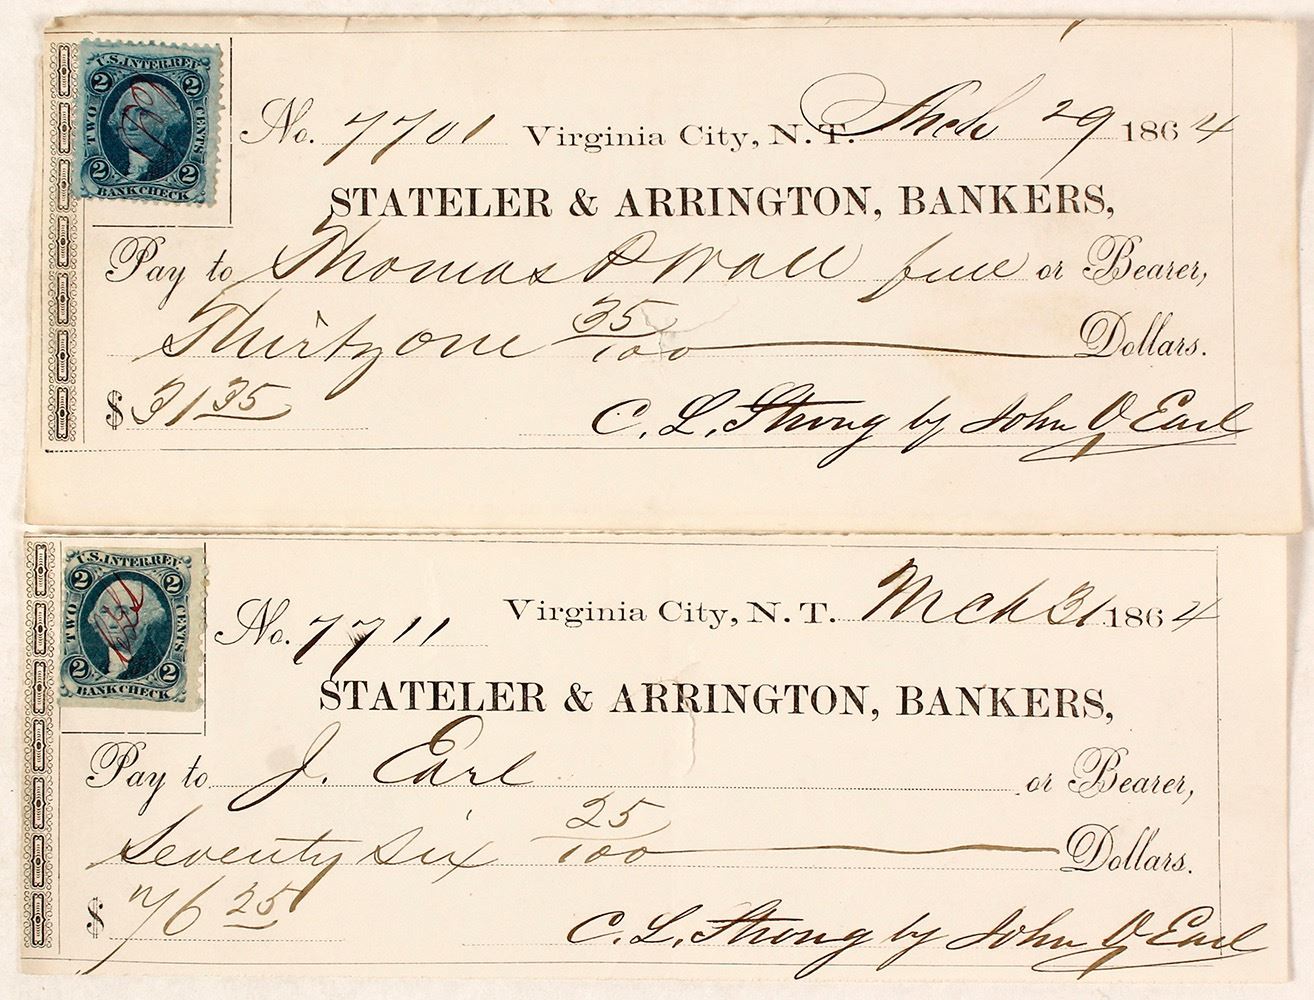 U.S. INTER. REV.
2 2
TWO CENTS
2 2
BANK CHECK
No. 7701 Virginia City, N. T. Mch 29 1864
STATELER & ARRINGTON, BANKERS,
Pay to Thomas P Wall full or Bearer,
Thirty one 35/100 Dollars.
$ 31 35
C. L. Strong by John O Earl
U.S. INTER. REV.
2 2
TWO CENTS
2 2
BANK CHECK
No. 7711 Virginia City, N. T. Mch 31 1864
STATELER & ARRINGTON, BANKERS,
Pay to J. Earl or Bearer,
Seventy six 25/100 Dollars.
$ 76 25
C. L. Strong by John O Earl